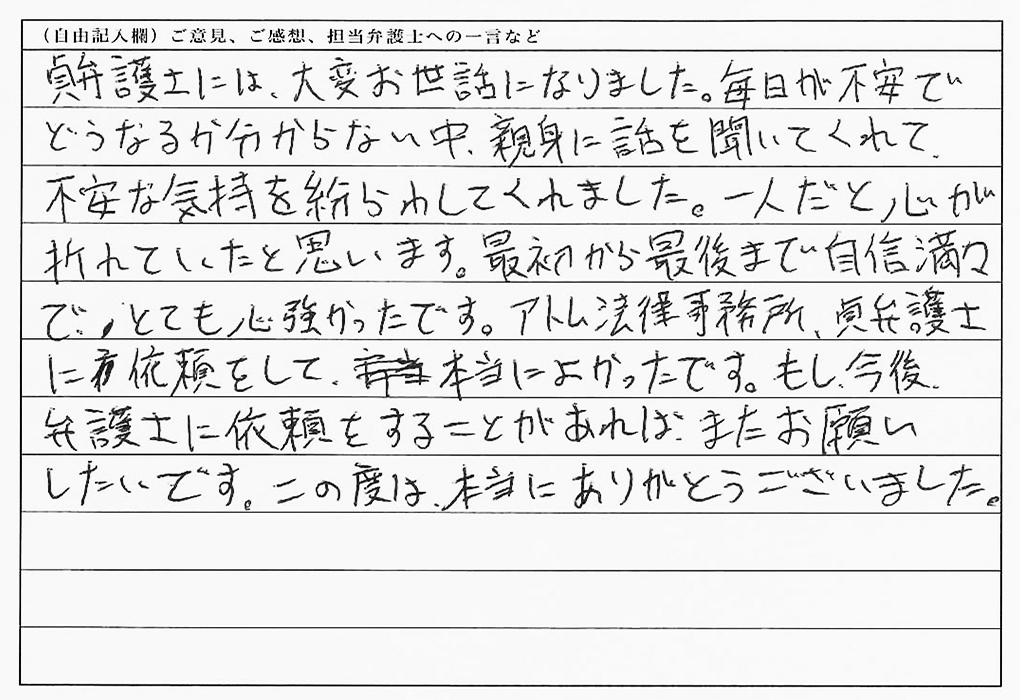 （自由記入欄）ご意見、ご感想、担当弁護士への一言など
貞弁護士には、大変お世話になりました。毎日が不安で
どうなるか分からない中、親身に話を聞いてくれて、
不安な気持を紛らわしてくれました。一人だと心が
折れていたと思います。最初から最後まで自信満々
で、とても心強かったです。アトム法律事務所、貞弁護士
に依頼をして、本当によかったです。もし、今後、
弁護士に依頼をすることがあれば、またお願い
したいです。この度は、本当にありがとうございました。